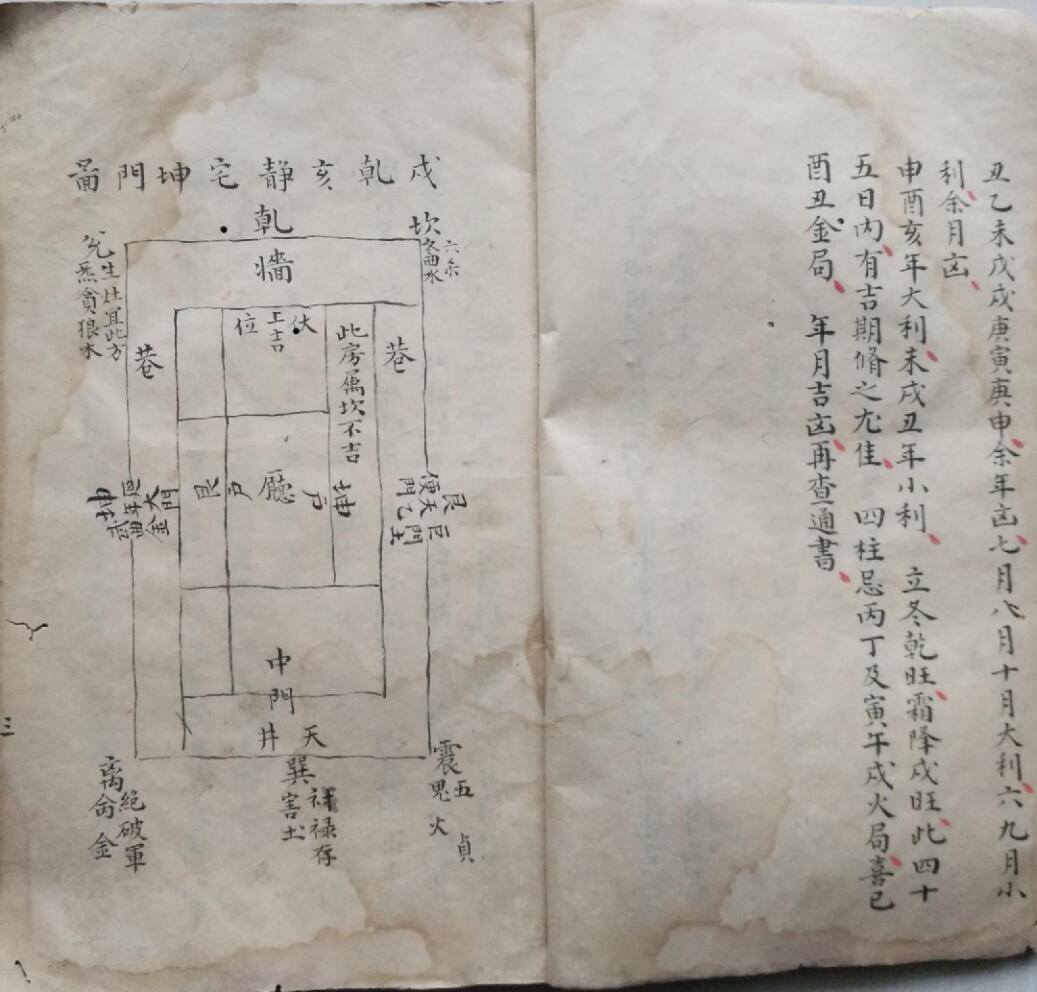 丑乙未戊戌庚寅庚申余年凶七月八月十月大利六九月小
利余月凶
申酉亥年大利未戌丑年小利 立冬乾旺霜降戌旺此四十
五日内有吉期脩之尤佳 四柱忌丙丁及寅午戌火局喜巳
酉丑金局 年月吉凶再查通書
戌乾亥静宅坤門啚
乾
墻
坎
六杀
文曲水
兊
生灶宜此方
炁貪狼水
巷
巷
伏
上吉
位
此房属坎不吉
廳
坤
户
户
艮
艮
巨
天門
便
門
乙土
坤
延年
武曲
大門
金
中門
天井
震
五
鬼火
貞
巽
禄存
害土
离
絕破軍
命金
三